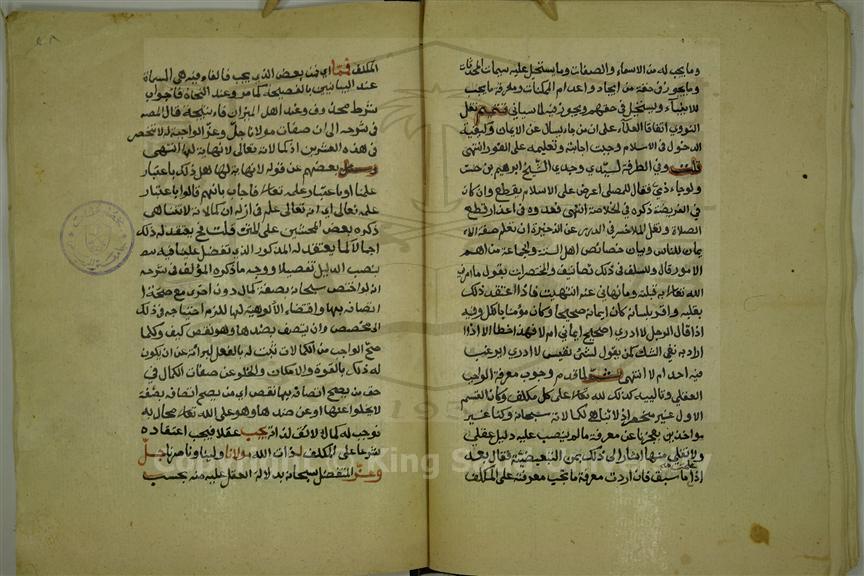 وما يجب له من الاسماء والصفات وما يستحيل عليه سمات المحدثات
وما يجوز في حقه من ايجاد واعدام الممكنات ومعرفة ما يجب
للانبياء ويستحيل في حقهم ويجوز فيه لما سياتي تتميم نقل
النووي اتفاق العلماء على ان من جاء يسأل عن الايمان وكيفية
الدخول في الاسلام وجبت اجابته وتعليمه على الفور انتهى
قلت وفي الطرفة لسيدي وجدي الشيخ ابرهيم بن حسن
ولو جاء ذمي فقال للمصلي اعرض علي الاسلام يقطع وان كان
في الفريضة ذكره في الخلاصة انتهى فعدوه في اعذار قطع
الصلاة ونقل في الدرر عن الذخيرة ان تعلم صفة الا
يمان للناس وبيان خصائص اهل السنة والجماعة من اهم
الامور قال وللسلف في ذلك تصانيف والمختصران يقول ما امرني
الله تعالى به قبلته وما نهاني عنه انتهيت فاذا اعتقد ذلك
بقلبه واقر بلسانه كان ايمانه صحيحا وكان مؤمنا بالكل وفيه
اذا قال الرجل لا ادري اصحيح ايماني ام لا فهذا خطا الا اذا
اراد به نفي الشك كمن يقول لشئ نفيس لا ادري ايرغب
فيه احد ام لا انتهى ولما قدم وجوب معرفة الواجب
العقلي وتالييه كذلك لله تعالى على كل مكلف وكان القسم
الاول غير منحصر اذ لا تتناهى كمالاته سبحانه وكنا غير
مواخذين بعجزنا عن معرفة ما لم ينصب عليه دليل عقلي
ولا نقلي منها اشار الى ذلك بمن التبعيضية فقال بعد
اذا ما سبق فان اردت معرفة ما يجب معرفته على المكلف
المكلف فمما اي فمن بعض الذي يجب فالفاء فيه هي المسماة
عند البيانيين بالفصيحة كما مر وعند النحاة فاء جواب
شرط محذوف وعند اهل الميزان فاء نتيجة قال المصنف
في شرحه الى ان صفات مولانا جل وعز الواجبة له لا تنحصر
في هذه العشرين اذ كمالاته تعالى لا نهاية لها انتهى
وسئل بعضهم عن قوله لا نهاية لها هل ذلك باعتبار
علمنا او باعتبار علمه تعالى فاجاب بانهم قالوا باعتبار
علمه تعالى اي انه تعالى علم في ازله ان كمالاته لا تتناهى
ذكره بعض المحشين على المتن قلت في يعتقد له ذلك
اجمالا كما يعتقد له المذكور الذي تفضل علينا فيه
بنصب الدليل تفصيلا ووجه ما ذكره المؤلف في شرحه
انه لو اختص سبحانه بصفة كمال دون اخرى مع صحة
اتصافه بها واقتضاء الالوهية لها للزم احتياجه في ذلك
الى مخصص وان يتصف بضدها وهو نقص كيف وكلما
صح للواجب من الكمالات ثبت له بالفعل لبراته عن ان يكون
له ذلك بالقوة والامكان والخلو عن صفات الكمال في
حق من يصح اتصافه بها نقص اي من يصح اتصافه بصفة
لا يخلو عنها او عن ضدها وهو على الله تعالى محال به
توجب له كمالا لائق لذاته يجب عقلا فيجب اعتقاده
شرعا على المكلف لذات الله مولانا ولينا وناصرنا جل
وعز المتفضل سبحانه بدلالة العقل عليه منه بحسب